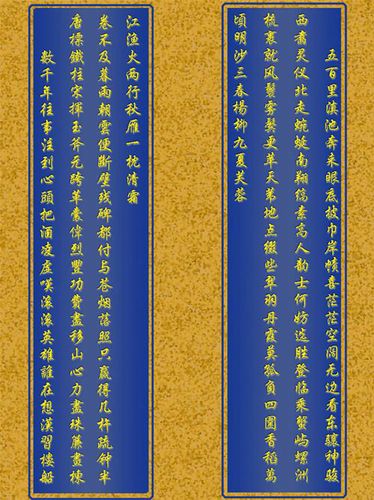 五百里滇池奔来眼底披巾岸帻喜茫茫空阔无边看东骧神骏
西翥灵仪北走蜿蜒南翔缟素高人韵士何妨选胜登临乘蟹屿螺洲
梳裹就风鬟雾鬓更苹天苇地点缀些翠羽丹霞莫孤負四围香稻萬
頃明沙三春楊柳九夏芙蓉
數千年往事注到心頭把酒凌虛嘆滾滾英雄誰在想漢習樓船
唐標鐵柱宋揮玉斧元跨革囊偉烈豐功費盡移山心力盡珠簾畫棟
卷不及暮雨朝雲便断壁残碑都付与苍烟落照只赢得几杵疏钟半
江渔火两行秋雁一枕清霜